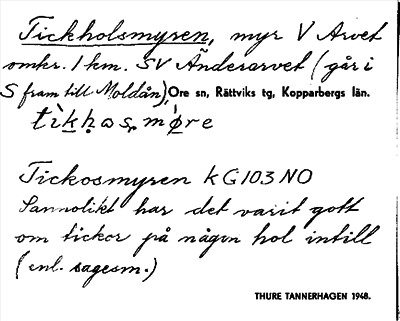 Tickholsmyren, myr V Arvet
omkr. 1 km. SV Änderarvet (går i
S fram till Moldån), Ore sn, Rättviks tg, Kopparbergs län.
Tickosmyren kG103 NO
Sannolikt har det varit gott
om tickor på någon hol intill
(enl. sagesm.)
THURE TANNERHAGEN 1948.